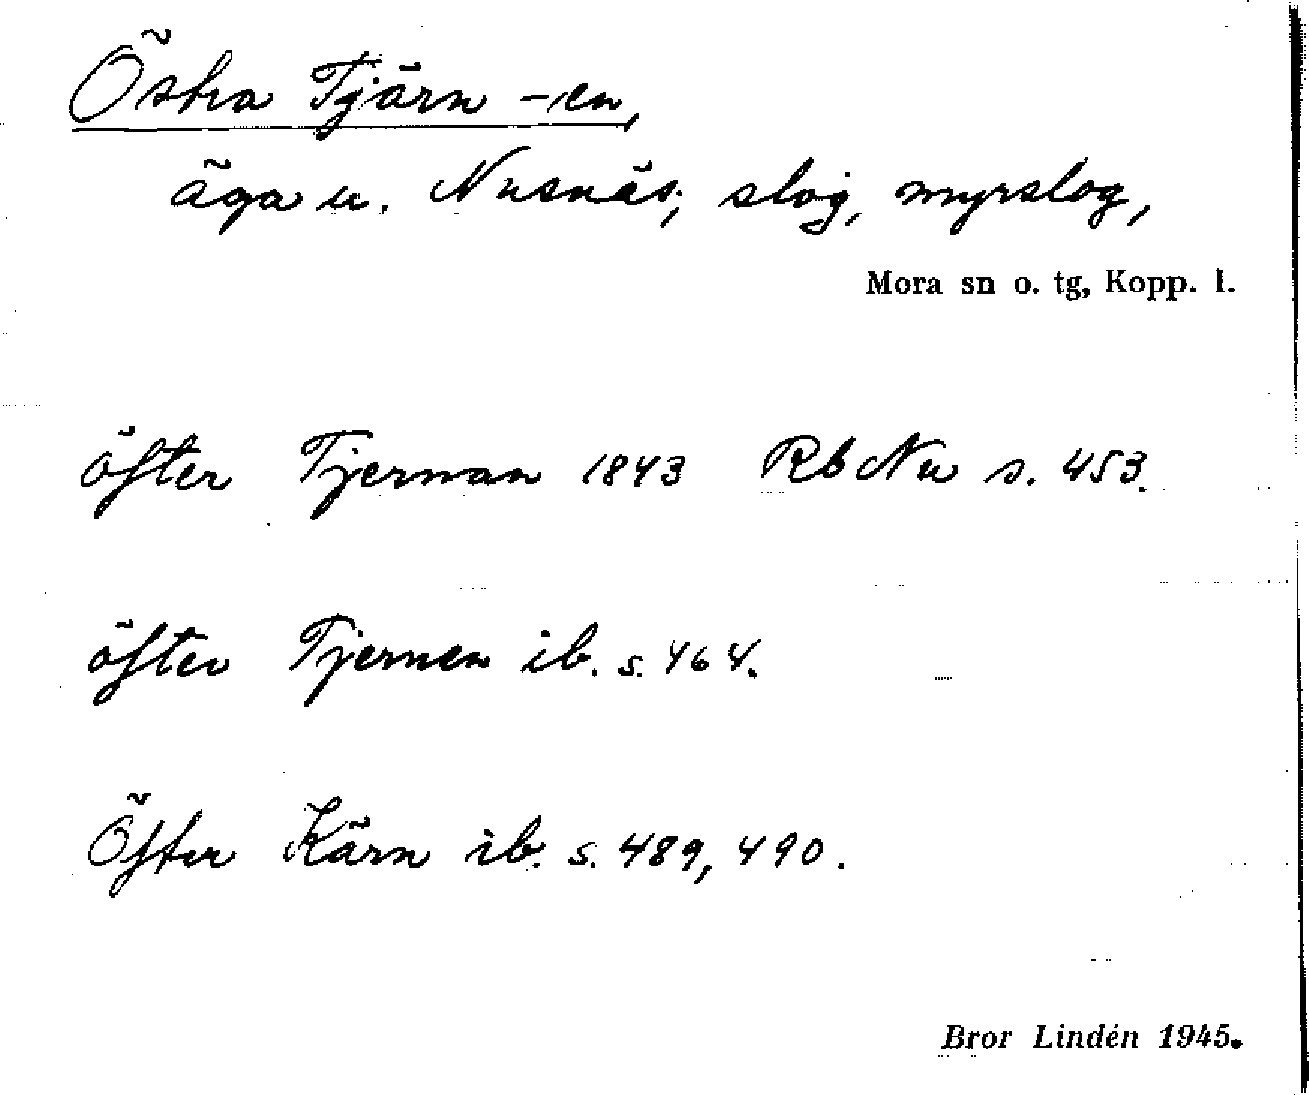 Östra Tjärn -en,
äga u. Nusnäs; slog, myrslog,
Mora sn o. tg, Kopp. l.
öfter Tjernan 1843 Rb Nu s. 453.
öfter Tjernen ib. s. 464.
Öfter Kärn ib. s. 489, 490.
Bror Lindén 1945.